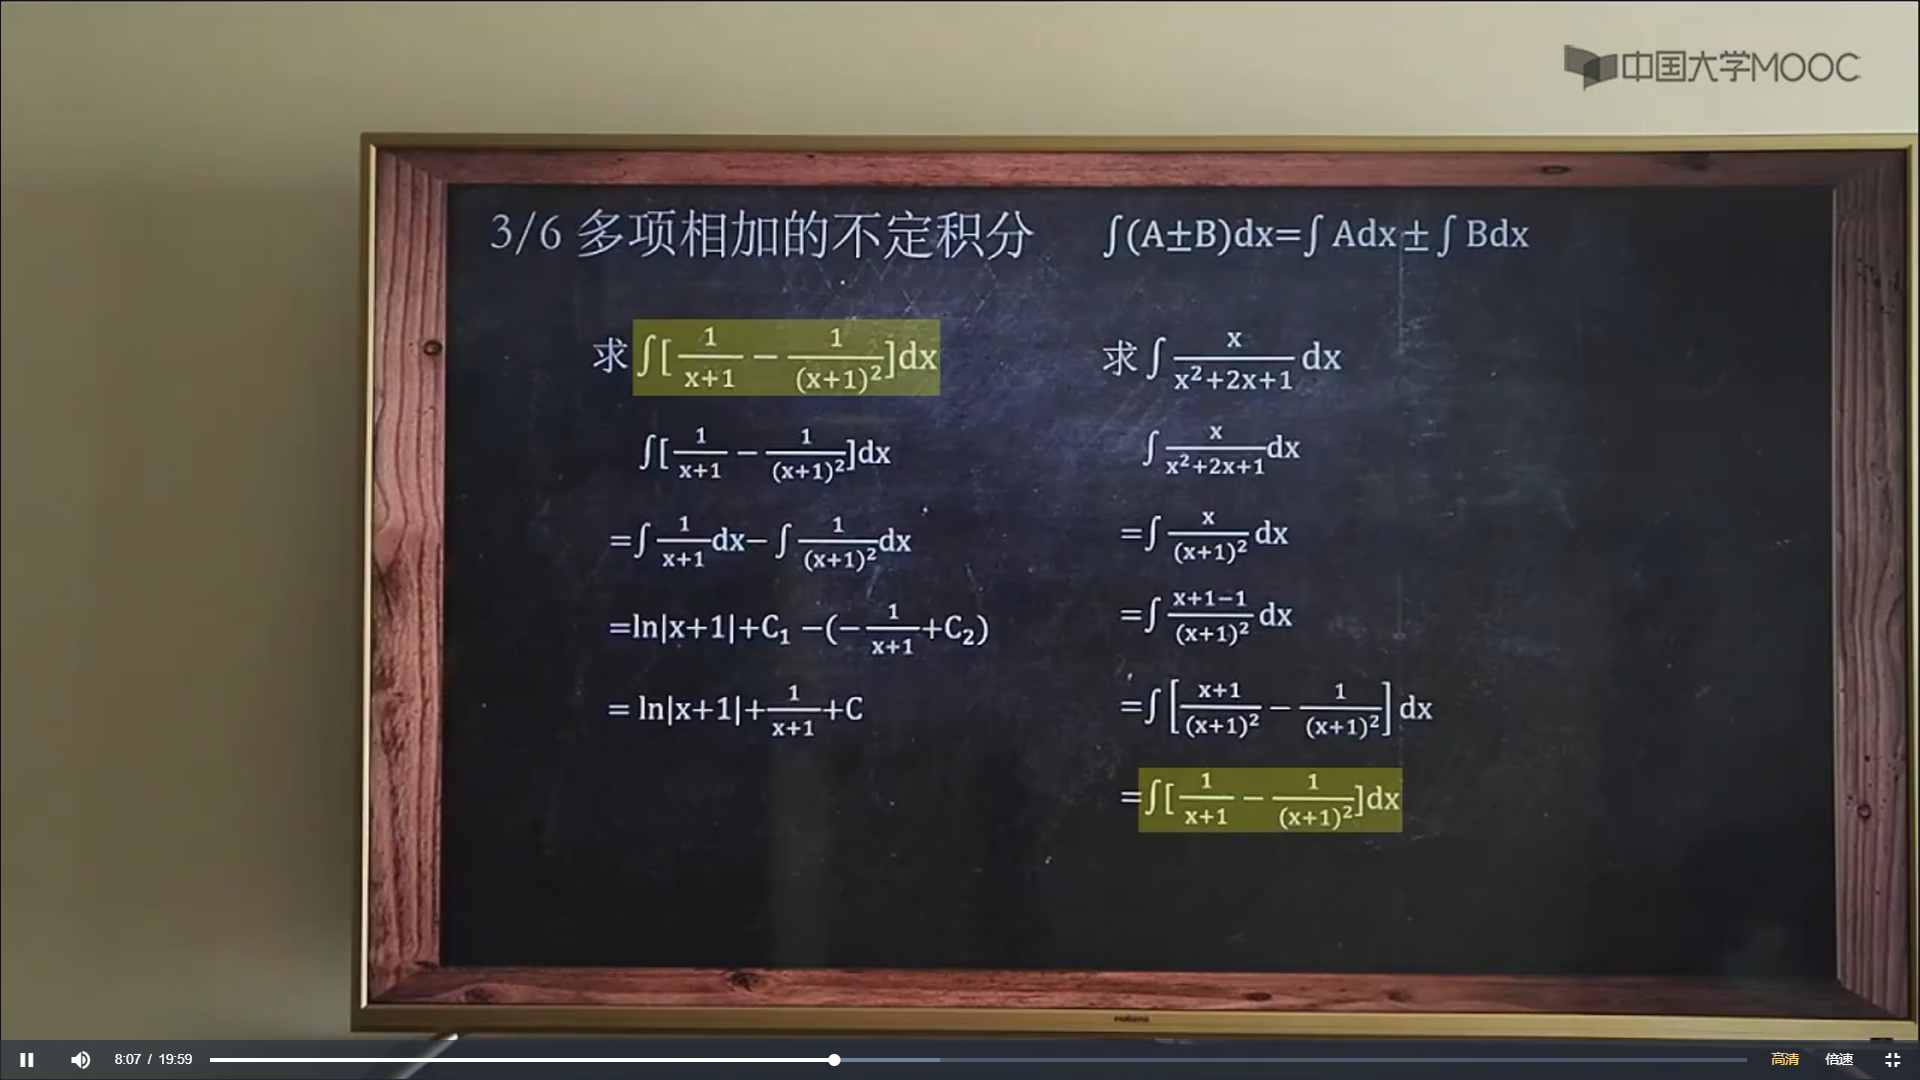 中国大学MOOC
3/6 多项相加的不定积分 ∫(A±B)dx=∫Adx±∫Bdx
求∫[1/(x+1) − 1/(x+1)²]dx
∫[1/(x+1) − 1/(x+1)²]dx
=∫1/(x+1)dx−∫1/(x+1)²dx
=ln|x+1|+C₁−(−1/(x+1)+C₂)
= ln|x+1|+1/(x+1)+C
求∫x/(x²+2x+1)dx
∫x/(x²+2x+1)dx
=∫x/(x+1)²dx
=∫(x+1−1)/(x+1)²dx
=∫[(x+1)/(x+1)² − 1/(x+1)²]dx
=∫[1/(x+1) − 1/(x+1)²]dx
8:07 / 19:59 高清 倍速